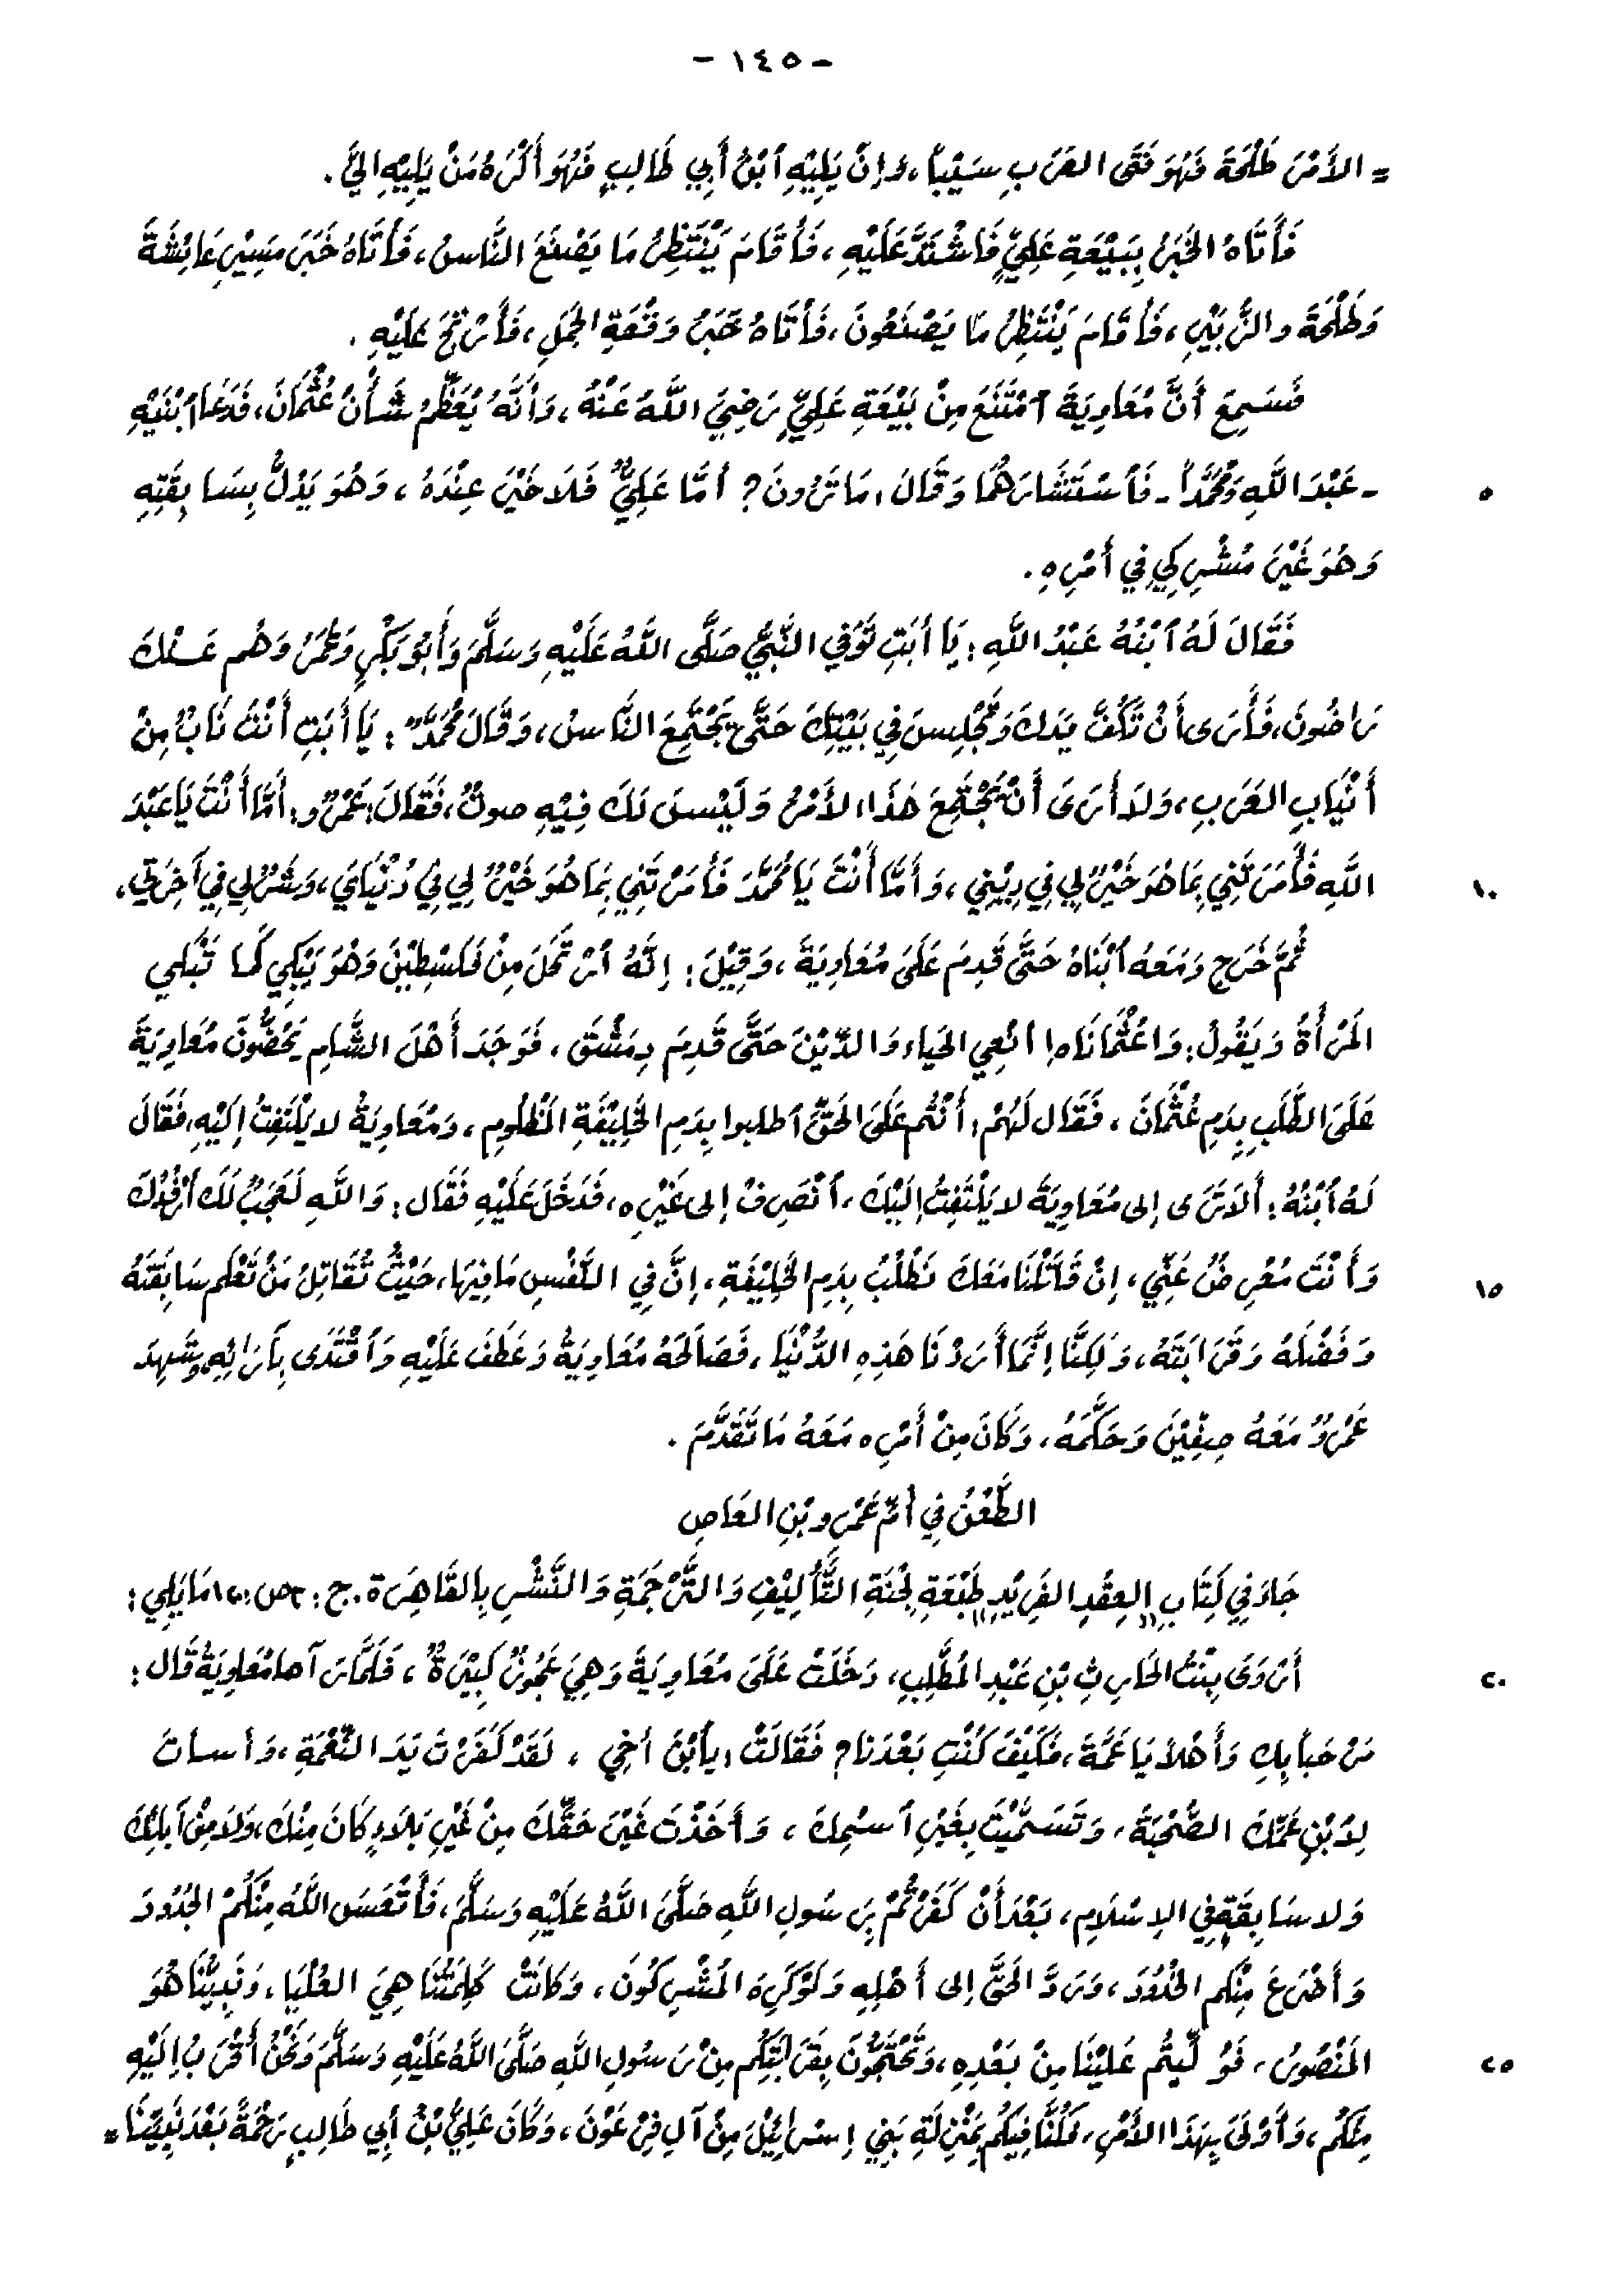 - ١٤٥ -
= الأَمْرَ طَلْحَةَ فَهُوَ فَتَى العَرَبِ سَيْباً، وَإِنْ يَلِيْهِ ٱبْنُ أَبِي طَالِبٍ فَهُوَ أَكْرَهُ مَنْ يَلِيْهِ إِليَّ.
فَأَتَاهُ الخَبَرُ بِبَيْعَةِ عَلِيٍّ فَاشْتَدَّ عَلَيْهِ، فَأَقَامَ يَنْتَظِرُ مَا يَصْنَعُ النَّاسُ، فَأَتَاهُ خَبَرُ مَسِيْرِ عَائِشَةَ
وَطَلْحَةَ والزُّبَيْرِ، فَأَقَامَ يَنْتَظِرُ مَا يَصْنَعُونَ، فَأَتَاهُ خَبَرُ وَقْعَةِ الجَمَلِ، فَأُرْتِجَ عَلَيْهِ.
فَسَمِعَ أَنَّ مُعَاوِيَةَ ٱمْتَنَعَ مِنْ بَيْعَةِ عَلِيٍّ رَضِيَ اللَّهُ عَنْهُ، وَأَنَّهُ يُعَظِّمُ شَأْنَ عُثْمَانَ، فَدَعَا ٱبْنَيْهِ
- عَبْدَ اللَّهِ وَمُحَمَّداً - فَٱسْتَشَارَهُمَا وَقَالَ: مَا تَرَوْنَ؟ أَمَّا عَلِيٌّ فَلَا خَيْرَ عِنْدَهُ، وَهُوَ يَدُلُّ بِسَابِقَتِهِ
٥
وَهُوَ غَيْرَ مُشْرِكِي فِي أَمْرِهِ.
فَقَالَ لَهُ ٱبْنُهُ عَبْدُ اللَّهِ: يَا أَبَتِ تُوُفِّيَ النَّبِيُّ صَلَّى اللَّهُ عَلَيْهِ وَسَلَّمَ وَأَبُو بَكْرٍ وَعُمَرُ وَهُم عَنْكَ
رَاضُونَ، فَأَرَى أَنْ تَكُفَّ يَدَكَ وَتَجْلِسَ فِي بَيْتِكَ حَتَّى يَجْتَمِعَ النَّاسُ، وَقَالَ مُحَمَّدٌ: يَا أَبَتِ أَنْتَ نَابٌ مِنْ
أَنْيَابِ العَرَبِ، وَلَا أَرَى أَنْ يَجْتَمِعَ هَذَا الأَمْرُ وَلَيْسَ لَكَ فِيْهِ صوتٌ، فَقَالَ عَمْرٌو: أَمَّا أَنْتَ يَا عَبْدَ
اللَّهِ فَأَمَرْتَنِي بِمَا هُوَ خَيْرٌ لِي فِي دِيْنِي، وَأَمَّا أَنْتَ يَا مُحَمَّدُ فَأَمَرْتَنِي بِمَا هُوَ خَيْرٌ لِي فِي دُنْيَايَ، وَشَرٌّ لِي فِي آخِرَتِي.
١٠
ثُمَّ خَرَجَ وَمَعَهُ ٱبْنَاهُ حَتَّى قَدِمَ عَلَى مُعَاوِيَةَ، وَقِيْلَ: إِنَّهُ ٱرْتَحَلَ مِنْ فَلَسْطِيْنَ وَهُوَ يَبْكِي كَمَا تَبْكِي
المَرْأَةُ وَيَقُولُ: وَاعُثْمَانَاه! أَنْعِي الحَيَاءَ وَالدِّيْنَ حَتَّى قَدِمَ دِمَشْقَ، فَوَجَدَ أَهْلَ الشَّامِ يَحُضُّونَ مُعَاوِيَةَ
عَلَى الطَّلَبِ بِدَمِ عُثْمَانَ، فَقَالَ لَهُمْ: أَنْتُم عَلَى الحَقِّ ٱطلبوا بِدَمِ الخَلِيْفَةِ المَظْلُومِ، وَمُعَاوِيَةُ لا يَلْتَفِتُ إِلَيْهِ، فَقَالَ
لَهُ ٱبْنُهُ: أَلَا تَرَى إلى مُعَاوِيَةَ لا يَلْتَفِتُ إِلَيْكَ، ٱنْصَرِفْ إلى غَيْرِه، فَدَخَلَ عَلَيْهِ فَقَال: وَاللَّهِ لَعَجَبٌ لَكَ أَرْفُدُكَ
وَأَنْتَ مُعْرِضٌ عَنِّي، إِنْ قَاتَلْنَا مَعَكَ نَطْلُبُ بِدَمِ الخَلِيْفَةِ، إِنَّ فِي النَّفْسِ مَا فِيْهَا، حَيْثُ تُقَاتِلُ مَنْ تَعْلَم سَابِقَتَهُ
١٥
وَفَضْلَهُ وَقَرَابَتَهُ، وَلَكِنَّا إِنَّمَا أَرَدْنَا هَذِهِ الدُّنْيَا، فَصَالَحَهُ مُعَاوِيَةُ وَعَطَفَ عَلَيْهِ وَٱقْتَدَى بِآرَائِهِ، وَشَهِدَ
عَمْرٌو مَعَهُ صِفِّيْنَ وَحَكَّمَهُ، وَكَانَ مِنْ أَمْرِه مَعَهُ مَا تَقَدَّمَ.
الطَّعْنُ فِي أُمِّ عَمْرِو بْنِ العَاصِ
جَاءَ فِي كِتَابِ "العِقْدِ الفَرِيْدِ" طَبْعَةِ لَجْنَةِ التَّأْلِيْفِ وَالتَّرْجَمَةِ وَالنَّشْرِ بِالقَاهِرَة. ج: ٢ ص: ١٢٠ مَا يَلِي:
أَرْوَى بِنْتُ الحَارِثِ بْنِ عَبْدِ المُطَّلِبِ، دَخَلَتْ عَلَى مُعَاوِيَةَ وَهِيَ عَجُوزٌ كَبِيْرَةٌ، فَلَمَّا رَآها مُعَاوِيَةُ قَال:
٢٠
مَرْحَباً بِكِ وَأَهْلاً يَا عَمَّةَ، فَكَيْفَ كُنْتِ بَعْدَنَا؟ فَقَالَتْ: يا ٱبْنَ أَخِي، لَقَدْ كَفَرْتَ يَدَ النِّعْمَةِ، وَأَسأتَ
لِٱبْنِ عَمِّكَ الصُّحْبَةَ، وَتَسَمَّيْتَ بِغَيْرِ ٱسْمِكَ، وَأَخَذْتَ غَيْرَ حَقِّكَ مِنْ غَيْرِ بَلَاءٍ كَانَ مِنْكَ، وَلَا مِنْ آبَائِكَ
وَلا سَابِقَةٍ فِي الإِسْلَامِ، بَعْدَ أَنْ كَفَرْتُمْ بِرَسُولِ اللَّهِ صَلَّى اللَّهُ عَلَيْهِ وَسَلَّمَ، فَأَتْعَسَ اللَّهُ مِنْكُمْ الجُدُودَ
وَأَضْرَعَ مِنْكُم الخُدُودَ، وَرَدَّ الحَقَّ إلى أَهْلِهِ وَلَوْ كَرِهَ المُشْرِكُونَ، وَكَانَتْ كَلِمَتُنَا هِيَ العُلْيَا، وَنَبِيُّنَا هُوَ
المَنْصُورُ، فَوُلِّيتُم عَلَيْنَا مِنْ بَعْدِهِ، وَتَحْتَجُّونَ بِقَرَابَتِكُم مِنْ رَسُولِ اللَّهِ صَلَّى اللَّهُ عَلَيْهِ وَسَلَّمَ وَنَحْنُ أَقْرَبُ إِلَيْهِ
٢٥
مِنْكُم، وَأَوْلَى بِهَذَا الأَمْرِ، فَكُنَّا فِيْكُم بِمَنْزِلَةِ بَنِي إِسْرَائِيْلَ مِنْ آلِ فِرْعَوْنَ، وَكَانَ عَلِيُّ بْنُ أَبِي طَالِبٍ رَحْمَةً بَعْدَ نَبِيِّنَا =